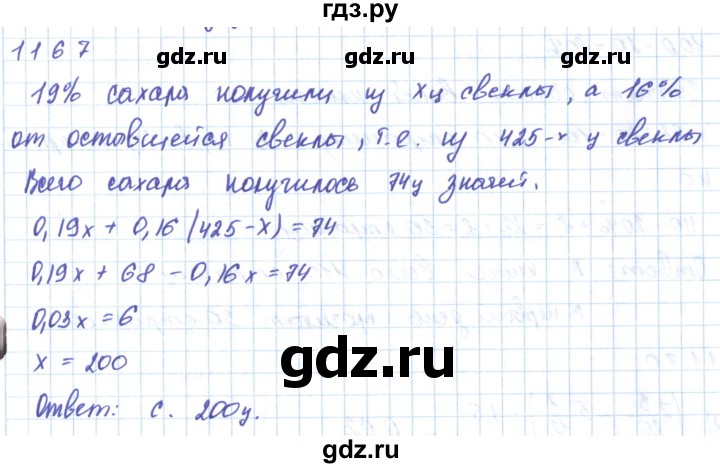 гдз.ру
1167
gdz.ru gdz.ru
19% сахара получили из x ц свеклы, а 16%
от оставшейся свеклы, т.е. из 425-x ц свеклы
Всего сахара получилось 74ц значит.
gdz.ru gdz.ru
0,19x + 0,16 (425-x) = 74
0,19x + 68 - 0,16x = 74
0,03x = 6
gdz.ru
x = 200
Ответ: с. 200ц.
gdz.ru
gdz.ru